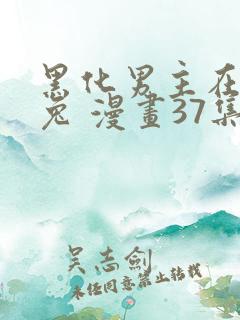 黑化男主在
兔 漫畫37集
吴志剑
未经同意禁止转载